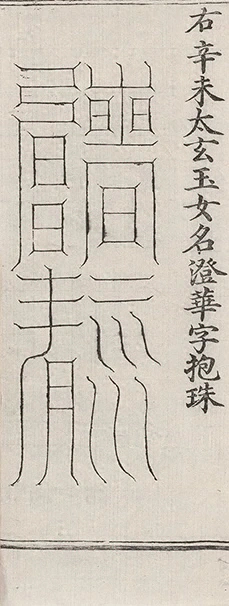 右辛未太玄玉女名澄華字抱珠